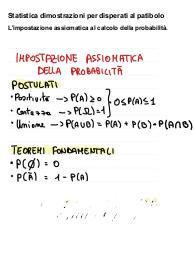 Statistica dimostrazioni per disperati al patibolo
L'impostazione assiomatica al calcolo della probabilità.
IMPOSTAZIONE ASSIOMATICA
DELLA PROBABILITÀ
POSTULATI
• Positività → P(A) ≥ 0 } 0 ≤ P(A) ≤ 1
• Certezza → P(Ω) = 1
• Unione → P(A∪B) = P(A) + P(B) - P(A∩B)
TEOREMI FONDAMENTALI
• P(∅) = 0
• P(Ā) = 1 - P(A)